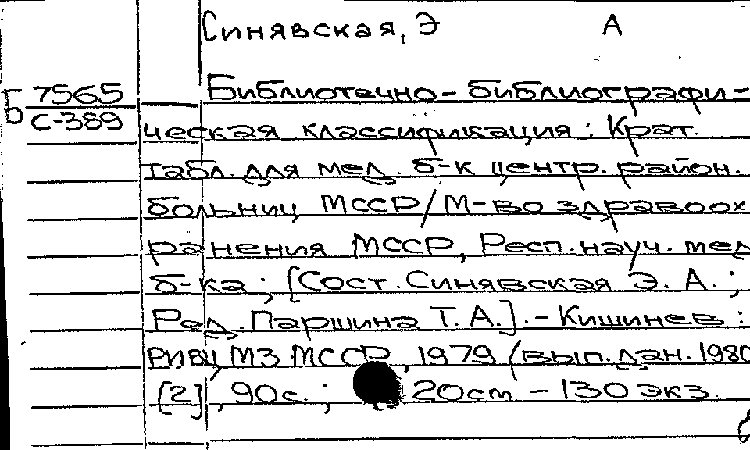 Синявская, Э А
Б 7565 Библиотечно-библиографи-
С-389 ческая классификация: Крат.
табл. для мед. б-к центр. район.
больниц МССР/М-во здравоох
ранения МССР, Респ. науч. мед
б-ка; [Сост. Синявская Э. А.;
Ред. Паршина Т. А.]. - Кишинев:
РИВЦ МЗ МССР, 1979 (вып. дан. 1980
[2], 90с.; 20ст - 130 экз.